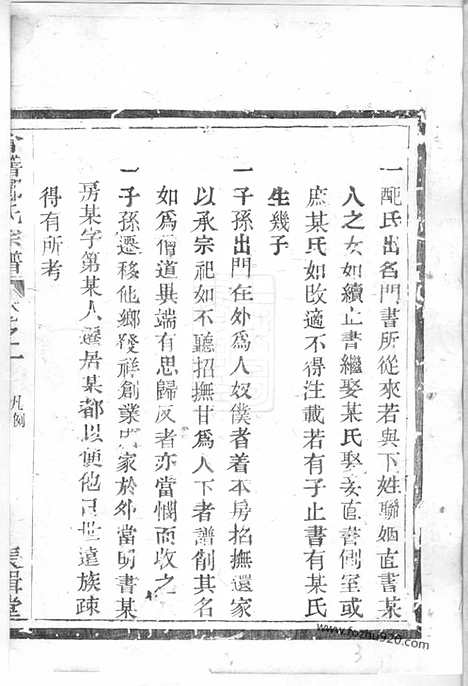 一配氏出名門書所從來若與下姓聯姻直書某
人之女如續止書繼娶某氏娶妾直書側室或
庶某氏如改適不得注載若有子止書有某氏
生幾子
一子孫出門在外為人奴僕者着本房招撫還家
以承宗祀如不聽招撫甘為人下者譜削其名
如為僧道異端有思歸反者亦當憫而收之
一子孫遷移他鄉發祥創業 家於外當明書某
房某字第某人遷居某都以便他日世遠族疎
得有所考
譜 氏宗譜 卷之一 凡例 堂
www.fozhu920.com
3